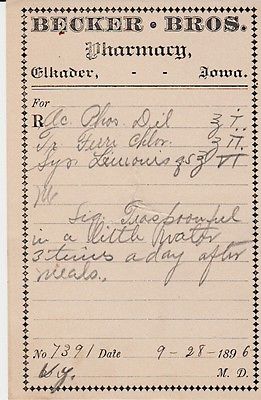 BECKER · BROS.
Pharmacy,
Elkader, - - Iowa.
For
R Ac. Phos. Dil ʒ i.
Tr Ferri Chlor. ʒ ii.
Syr. Limonis qs ℥ vi
M
Sig. Teaspoonful
in a little water
3 times a day after
meals.
No 7391 Date 9-28-1896
M. D.